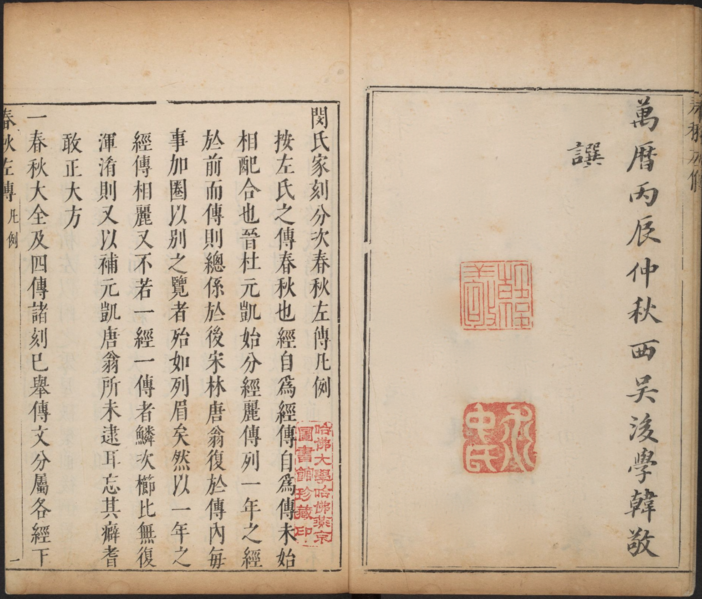 萬曆丙辰仲秋西吳後學韓敬
譔
閔氏家刻分次春秋左傳凡例
按左氏之傳春秋也經自爲經傳自爲傳未始
相配合也晉杜元凱始分經麗傳列一年之經
於前而傳則總係於後宋林唐翁復於傳內每
事加圈以別之覽者殆如列眉矣然以一年之
經傳相麗又不若一經一傳者鱗次櫛比無復
渾淆則又以補元凱唐翁所未逮耳忘其癖耆
敢正大方
一春秋大全及四傳諸刻已舉傳文分屬各經下
春秋左傳 凡例
一
哈佛大學哈佛燕京
圖書館珍藏印